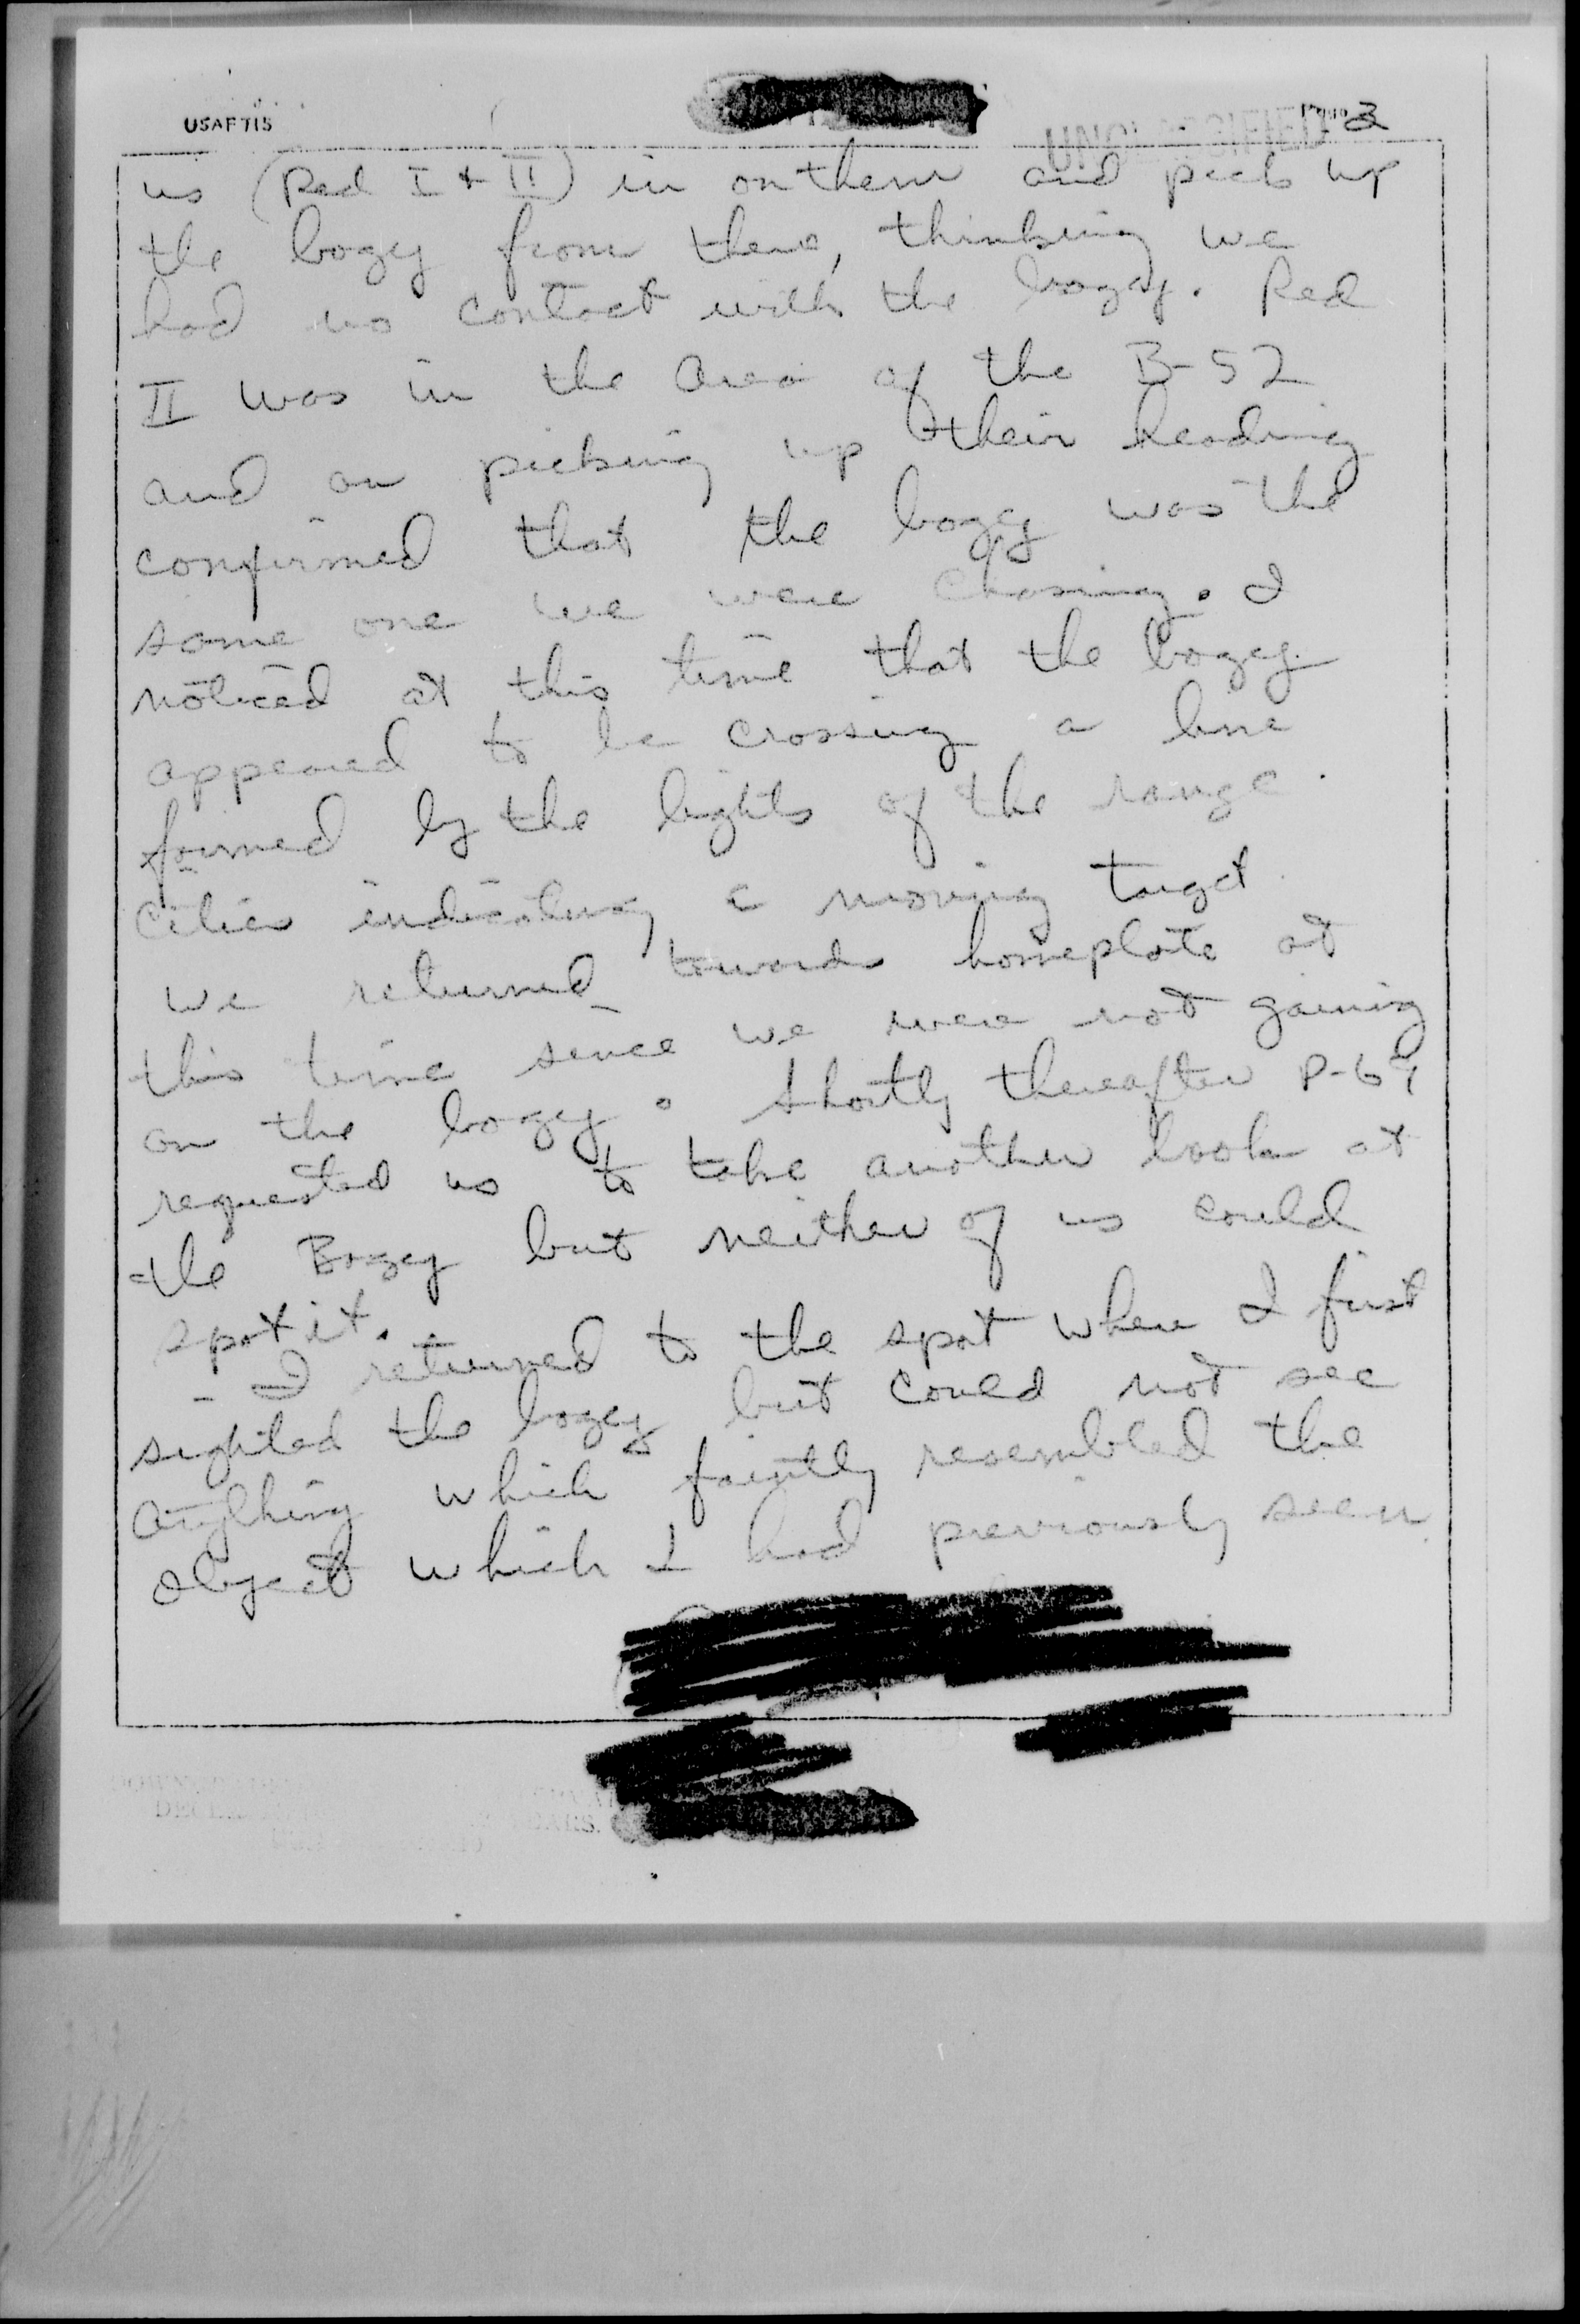 USAFTIS
UNCLASSIFIED
Page 3
us (Red I + II) in on them and pick up
the bogey from there, thinking we
had no contact with the bogey. Red
II was in the area of the B-52
and on picking up their heading
confirmed that the bogey was the
same one we were chasing. I
noticed at this time that the bogey
appeared to be crossing a line
formed by the lights of the range
cities indicating a moving target.
We returned towards homeplate at
this time since we were not gaining
on the bogey. Shortly thereafter P-69
requested us to take another look at
the Bogey but neither of us could
spot it.
- I returned to the spot where I first
sighted the bogey but could not see
anything which faintly resembled the
object which I had previously seen.